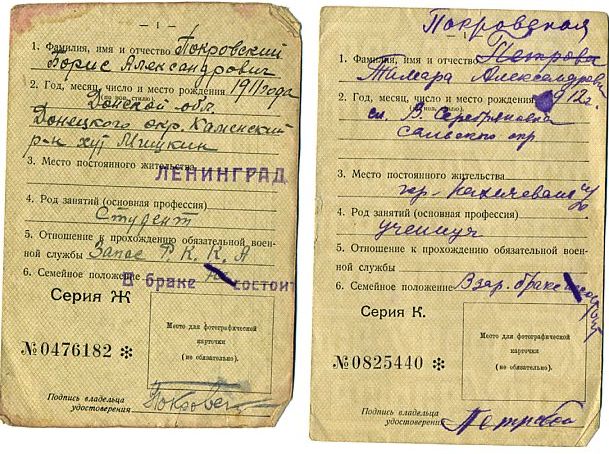 — 1 —
1. Фамилия, имя и отчество Покровский
Борис Александрович
2. Год, месяц, число и место рождения 1911 года
(по нов. стилю)
Донской обл.
Донецкого окр. Каменский
р-н хут Мицкин
3. Место постоянного жительства
ЛЕНИНГРАД
4. Род занятий (основная профессия)
Студент
5. Отношение к прохождению обязательной воен-
ной службы Запас Р. К. К. А
6. Семейное положение
В браке состоит
Серия Ж
№ 0476182 ✻
Место для фотографической
карточки
(не обязательно).
Подпись владельца
удостоверения
Покровский
Покровская
1. Фамилия, имя и отчество Петрова
Тамара Александров
2. Год, месяц, число и место рождения 1912 г.
В. Серебряковка
Сальского окр
3. Место постоянного жительства
гор.
4. Род занятий (основная профессия)
5. Отношение к прохождению обязательной воен-
ной службы
6. Семейное положение В зар. браке
Серия К.
№ 0825440 ✻
Место для фотографической
карточки
(не обязательно).
Подпись владельца
удостоверения
Петрова